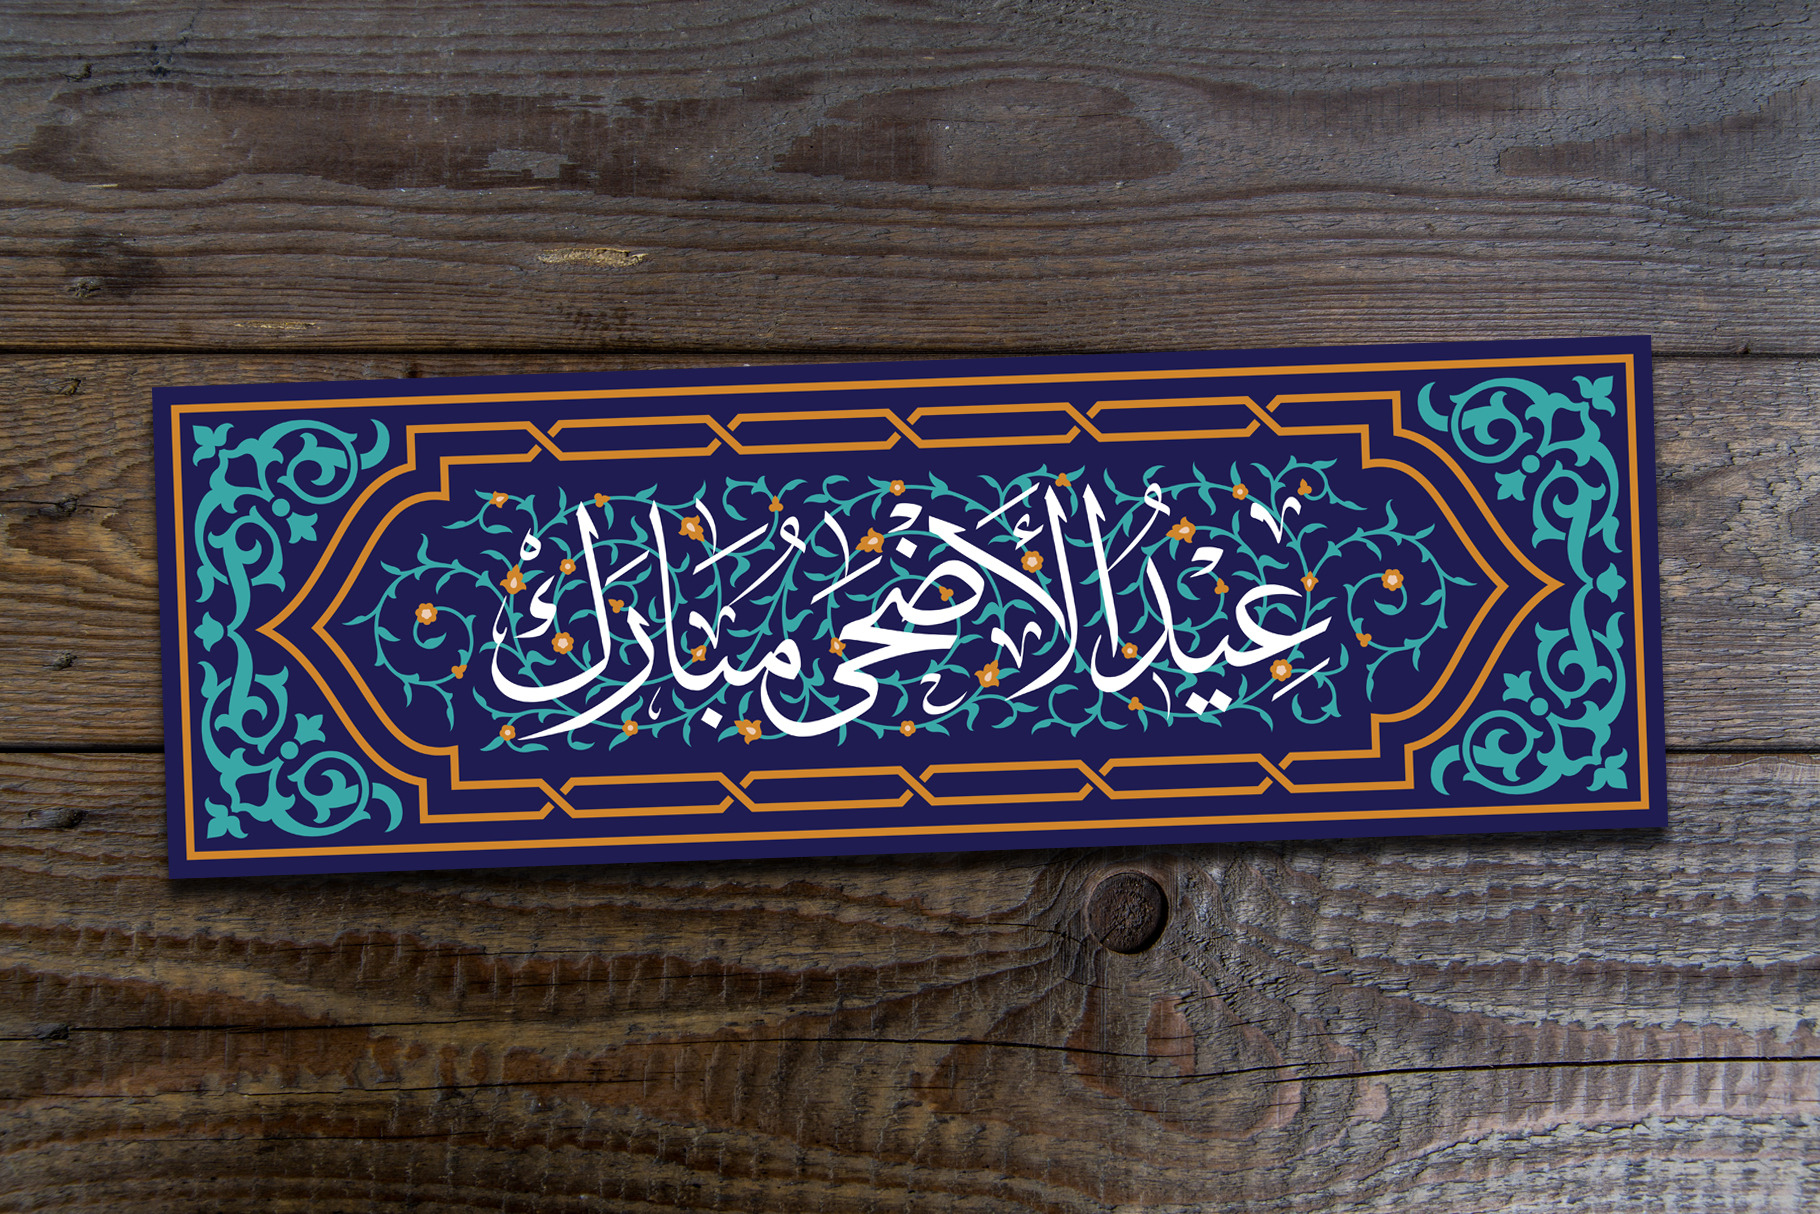 عِيْدُ الْأَضْحَى مُبَارَكْ